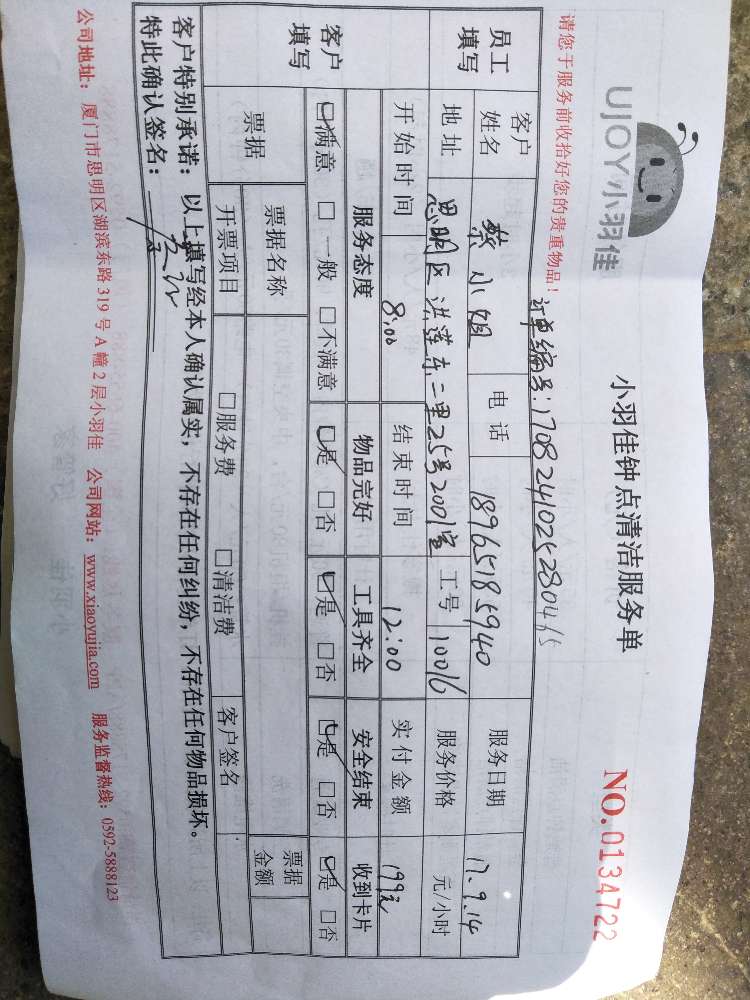 UJOY小羽佳
小羽佳钟点清洁服务单
NO.0134722
请您于服务前收拾好您的贵重物品！
订单编号:1708241025280415
员工填写
客户姓名 蔡小姐 电话 18965185940 服务日期 17.9.14
地址 思明区洪莲东二里25号2001室 工号 10016 服务价格 元/小时
开始时间 8:00 结束时间 12:00 实付金额 199元
客户填写
服务态度 物品完好 工具齐全 安全结束 收到卡片
☑满意 □一般 □不满意 ☑是 □否 ☑是 □否 ☑是 □否 ☑是 □否
票据 票据名称 票据金额
开票项目 □服务费 □清洁费 客户签名
客户特别承诺：以上填写经本人确认属实，不存在任何纠纷，不存在任何物品损坏。
特此确认签名：
公司地址：厦门市思明区湖滨东路319号A幢2层小羽佳 公司网站：www.xiaoyujia.com 服务监督热线：0592-5888123